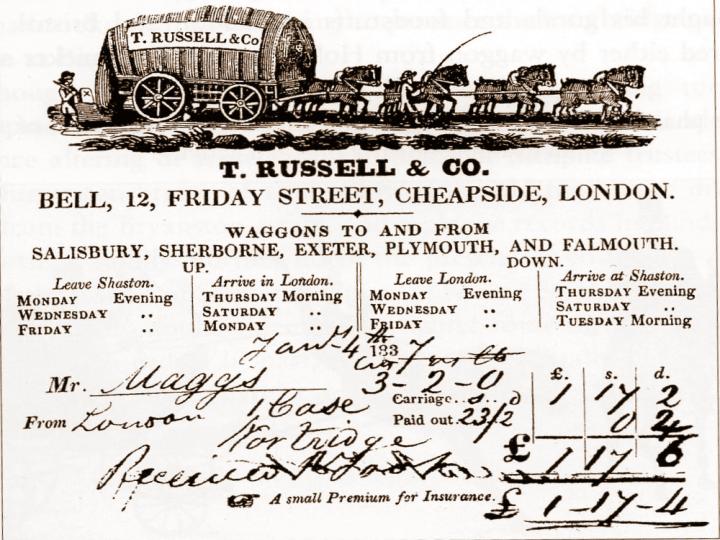 T. RUSSELL & Co
T. RUSSELL & CO.
BELL, 12, FRIDAY STREET, CHEAPSIDE, LONDON.
WAGGONS TO AND FROM
SALISBURY, SHERBORNE, EXETER, PLYMOUTH, AND FALMOUTH.
UP. DOWN.
Leave Shaston. Arrive in London. Leave London. Arrive at Shaston.
MONDAY Evening THURSDAY Morning MONDAY Evening THURSDAY Evening
WEDNESDAY .. SATURDAY .. WEDNESDAY .. SATURDAY ..
FRIDAY .. MONDAY .. FRIDAY .. TUESDAY Morning
4th 1837
Mr. Maggs 3-2-0 £. s. d.
From London 1 Case Carriage s. d 1 17 2
Paid out. 23/2 0 2
£ 1 17 6
Received
A small Premium for Insurance. £ 1-17-4